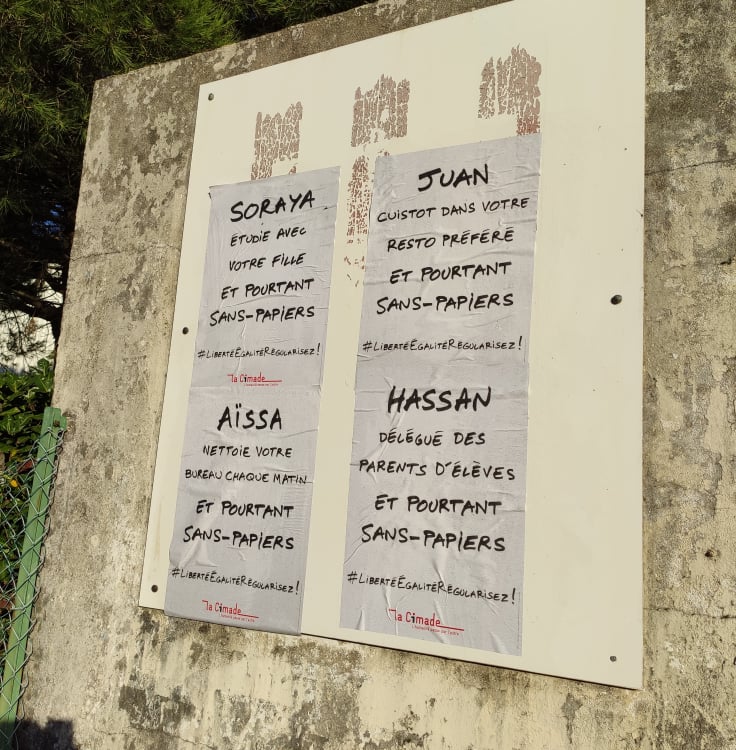 SORAYA
ÉTUDIE AVEC
VOTRE FILLE
ET POURTANT
SANS-PAPIERS
#LIBERTÉEGALITÉRÉGULARISEZ!
la Cimade
AÏSSA
NETTOIE VOTRE
BUREAU CHAQUE MATIN
ET POURTANT
SANS-PAPIERS
#LIBERTÉEGALITÉRÉGULARISEZ!
la Cimade
JUAN
CUISTOT DANS VOTRE
RESTO PRÉFÉRÉ
ET POURTANT
SANS-PAPIERS
#LIBERTÉEGALITÉRÉGULARISEZ!
HASSAN
DÉLÉGUÉ DES
PARENTS D'ÉLÈVES
ET POURTANT
SANS-PAPIERS
#LIBERTÉEGALITÉRÉGULARISEZ!
la Cimade